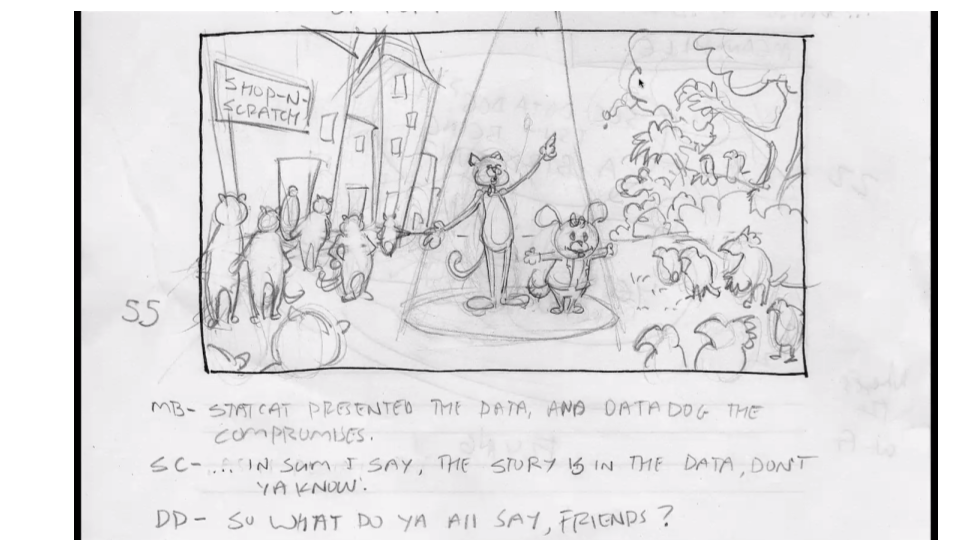 SHOP-N-
SCRATCH
55
MB- STATCAT PRESENTED THE DATA, AND DATADOG THE
COMPROMISES.
SC- ... IN SUM I SAY, THE STORY IS IN THE DATA, DON'T
YA KNOW.
DD- SO WHAT DO YA All SAY, FRIENDS?